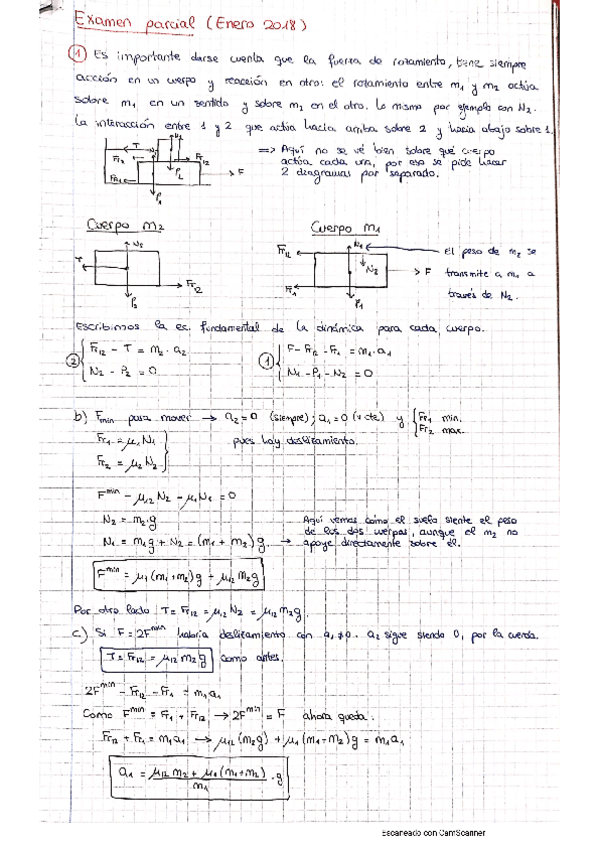 Examen parcial (Enero 2018)
① Es importante darse cuenta que la fuerza de rozamiento, tiene siempre
acción en un cuerpo y reacción en otro: el rozamiento entre m₁ y m₂ actúa
sobre m₁ en un sentido y sobre m₂ en el otro. Lo mismo por ejemplo con N₂.
La interacción entre 1 y 2 que actúa hacia arriba sobre 2 y hacia abajo sobre 1.
T
Fr₁₂
P₂
Fr₁₂
F
P₁
=> Aquí no se vé bien sobre qué cuerpo
actúa cada una, por eso se pide hacer
2 diagramas por separado.
Cuerpo m₂
N₂
T
Fr₁₂
P₂
Cuerpo m₁
Fr₁₂
N₁
N₂
F
Fr₁
P₁
el peso de m₂ se
transmite a m₁ a
través de N₂.
Escribimos la ec. fundamental de la dinámica para cada cuerpo.
② { Fr₁₂ - T = m₂·a₂
N₂ - P₂ = 0
① { F - Fr₁₂ - Fr₁ = m₁·a₁
N₁ - P₁ - N₂ = 0
b) Fmin para mover → a₂=0 (siempre); a₁=0 (v cte) y { Fr₁ min.
Fr₂ max.
Fr₁ = μ₁N₁
Fr₂ = μ₂N₂ }
pues hay deslizamiento.
F^min - μ₁₂N₂ - μ₁N₁ = 0
N₂ = m₂·g
N₁ = m₁g + N₂ = (m₁ + m₂)g. →
Aquí vemos cómo el suelo siente el peso
de los dos cuerpos, aunque el m₂ no
apoye directamente sobre él.
F^min = μ₁(m₁+m₂)g + μ₁₂m₂g
Por otro lado T = Fr₁₂ = μ₁₂N₂ = μ₁₂m₂g.
c) Si F = 2F^min habría deslizamiento con a₁≠0. a₂ sigue siendo 0, por la cuerda.
T = Fr₁₂ = μ₁₂m₂g como antes.
2F^min - Fr₁₂ - Fr₁ = m₁a₁
Como F^min = Fr₁ + Fr₁₂ → 2F^min = F ahora queda:
Fr₁₂ + Fr₁ = m₁a₁ → μ₁₂(m₂g) + μ₁(m₁+m₂)g = m₁a₁
a₁ = (μ₁₂m₂ + μ₁(m₁+m₂))/m₁ · g
Escaneado con CamScanner